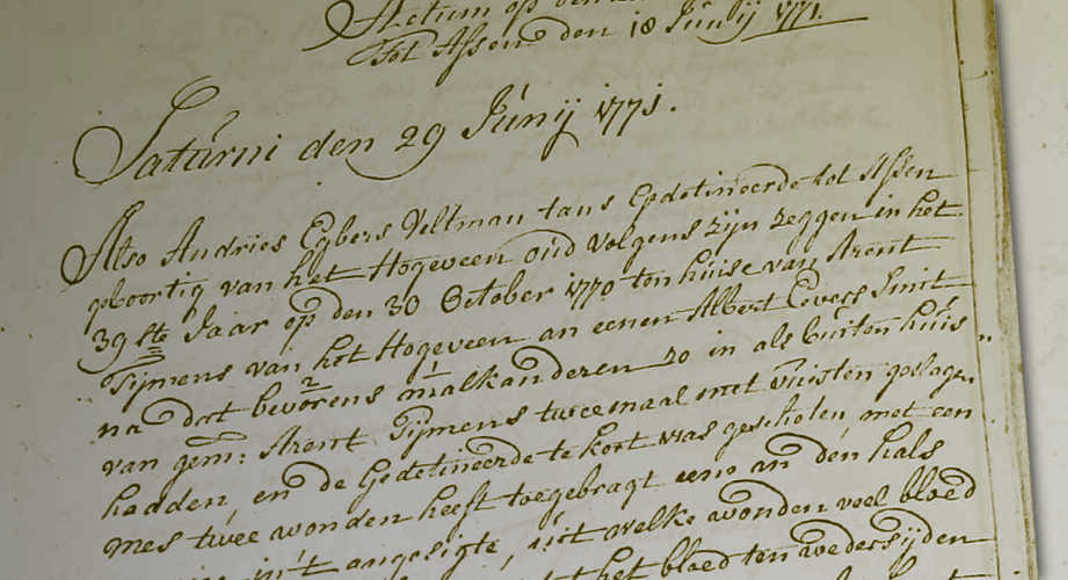 Actum op den
Tot Assen den 18 Junij 1771.
Saturni den 29 Junij 1771.
Also Andries Egbers Veltman tans Gedetineerde tot Assen
geboortig van het Hogeveen oud volgens zijn zeggen in het
39 ste Jaar op den 30 October 1770 ten huise van Arent
Tijmens van het Hogeveen an eenen Albert Evers Smit
na dat bevorens malkanderen zo in als buiten huis
van gem: Arent Tijmens tweemaal met vuisten geslagen
hadden, en de Gedetineerde te kort was geschoten, met een
mes twee wonden heeft toegebragt eene an den hals
in't angesigte, uit welke wonden veel bloed
het bloed ten wedersijden